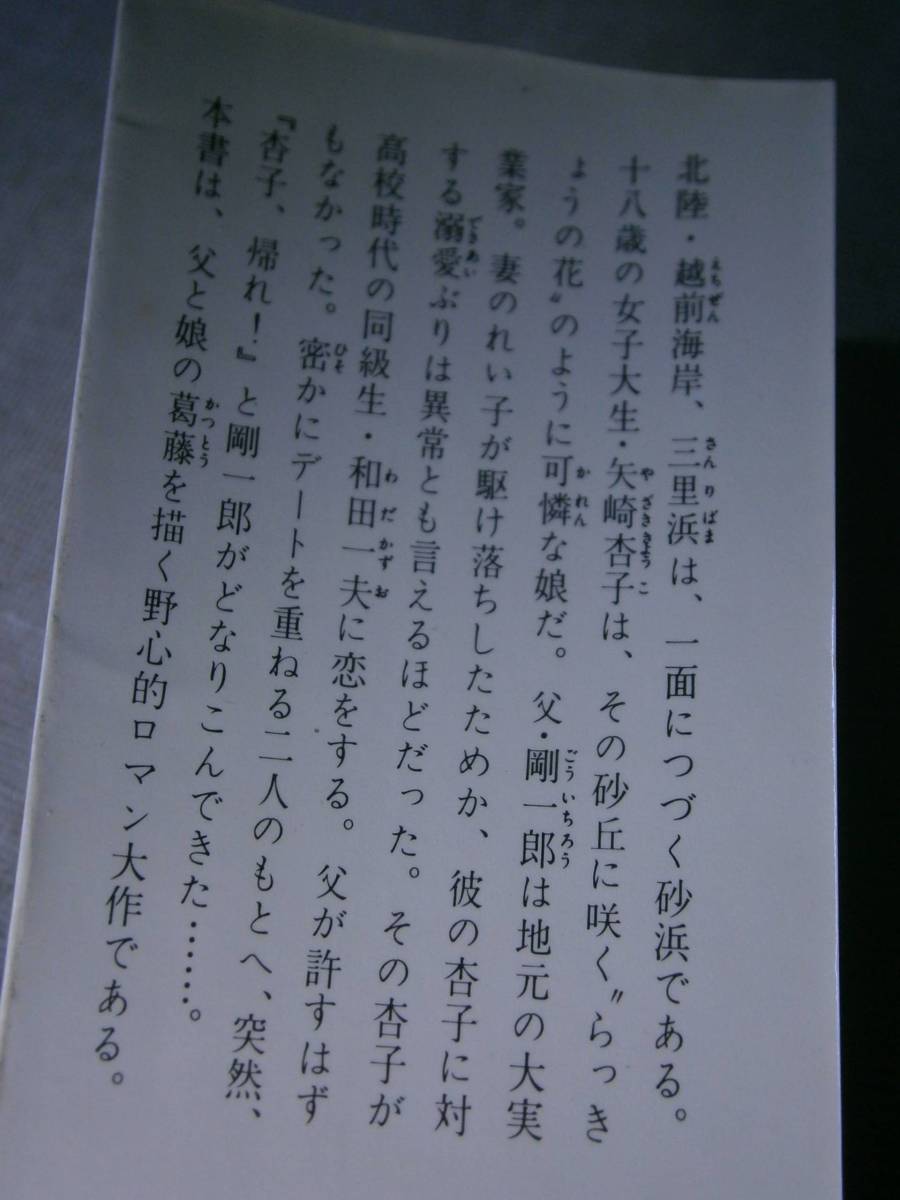 北陸・越前海岸、三里浜は、一面につづく砂浜である。
十八歳の女子大生・矢崎杏子は、その砂丘に咲く〝らっき
ょうの花〟のように可憐な娘だ。父・剛一郎は地元の大実
業家。妻のれい子が駆け落ちしたためか、彼の杏子に対
する溺愛ぶりは異常とも言えるほどだった。その杏子が
高校時代の同級生・和田一夫に恋をする。父が許すはず
もなかった。密かにデートを重ねる二人のもとへ、突然、
『杏子、帰れ！』と剛一郎がどなりこんできた……。
本書は、父と娘の葛藤を描く野心的ロマン大作である。